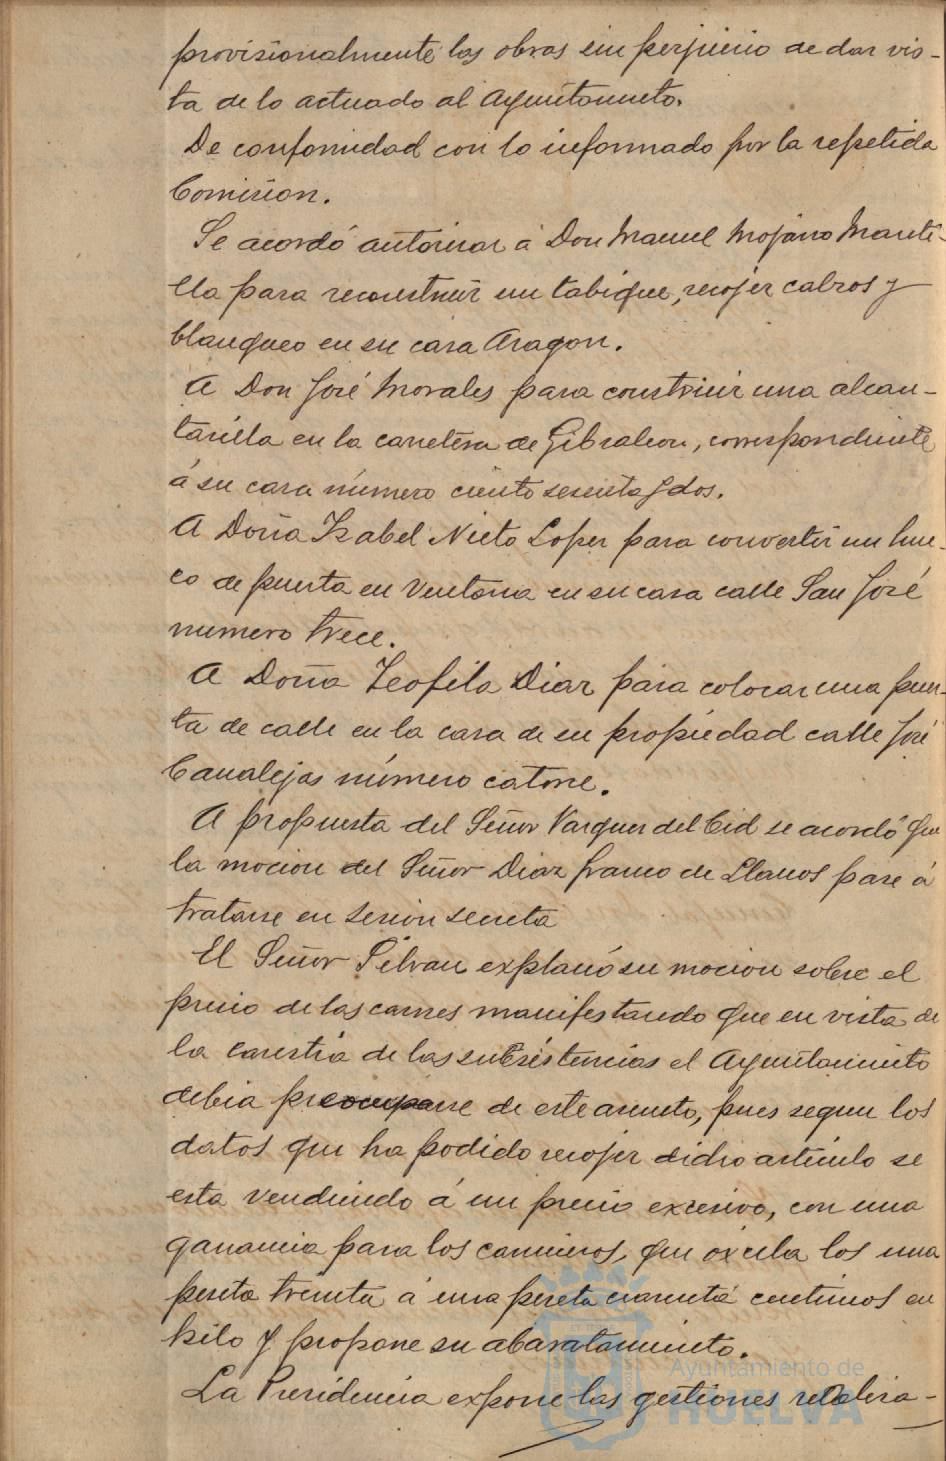 provisionalmente las obras sin perjuicio de dar vis-
ta de lo actuado al Ayuntamiento.
De conformidad con lo informado por la repetida
Comision.
Se acordó autorizar á Don Manuel Mojarro Manti-
lla para reconstruir un tabique, recojer calzos y
blanqueo en su casa Aragon.
A Don José Morales para construir una alcan-
tarilla en la carretera de Gibraleon, correspondiente
á su casa número ciento sesenta y dos.
A Doña Isabel Nieto Lopez para convertir un hue-
co de puerta en ventana en su casa calle San José
numero trece.
A Doña Teofila Diaz para colocar una puer-
ta de calle en la casa de su propiedad calle José
Canalejas número catorce.
A propuesta del Señor Vazquez del Cid se acordó que
la mocion del Señor Diaz franco de Llanos pase á
tratarse en sesion secreta
El Señor Pilvan explanó su mocion sobre el
precio de las carnes manifestando que en vista de
la carestia de las subsistencias el Ayuntamiento
debia preocuparse de este asunto, pues segun los
datos que ha podido recojer dicho articulo se
esta vendiendo á un precio excesivo, con una
ganancia para los carniceros, que oxcila los una
peseta treinta á una peseta cuarenta centimos en
kilo y propone su abaratamiento.
La Presidencia expone las gestiones realiza-
Ayuntamiento de
HUELVA